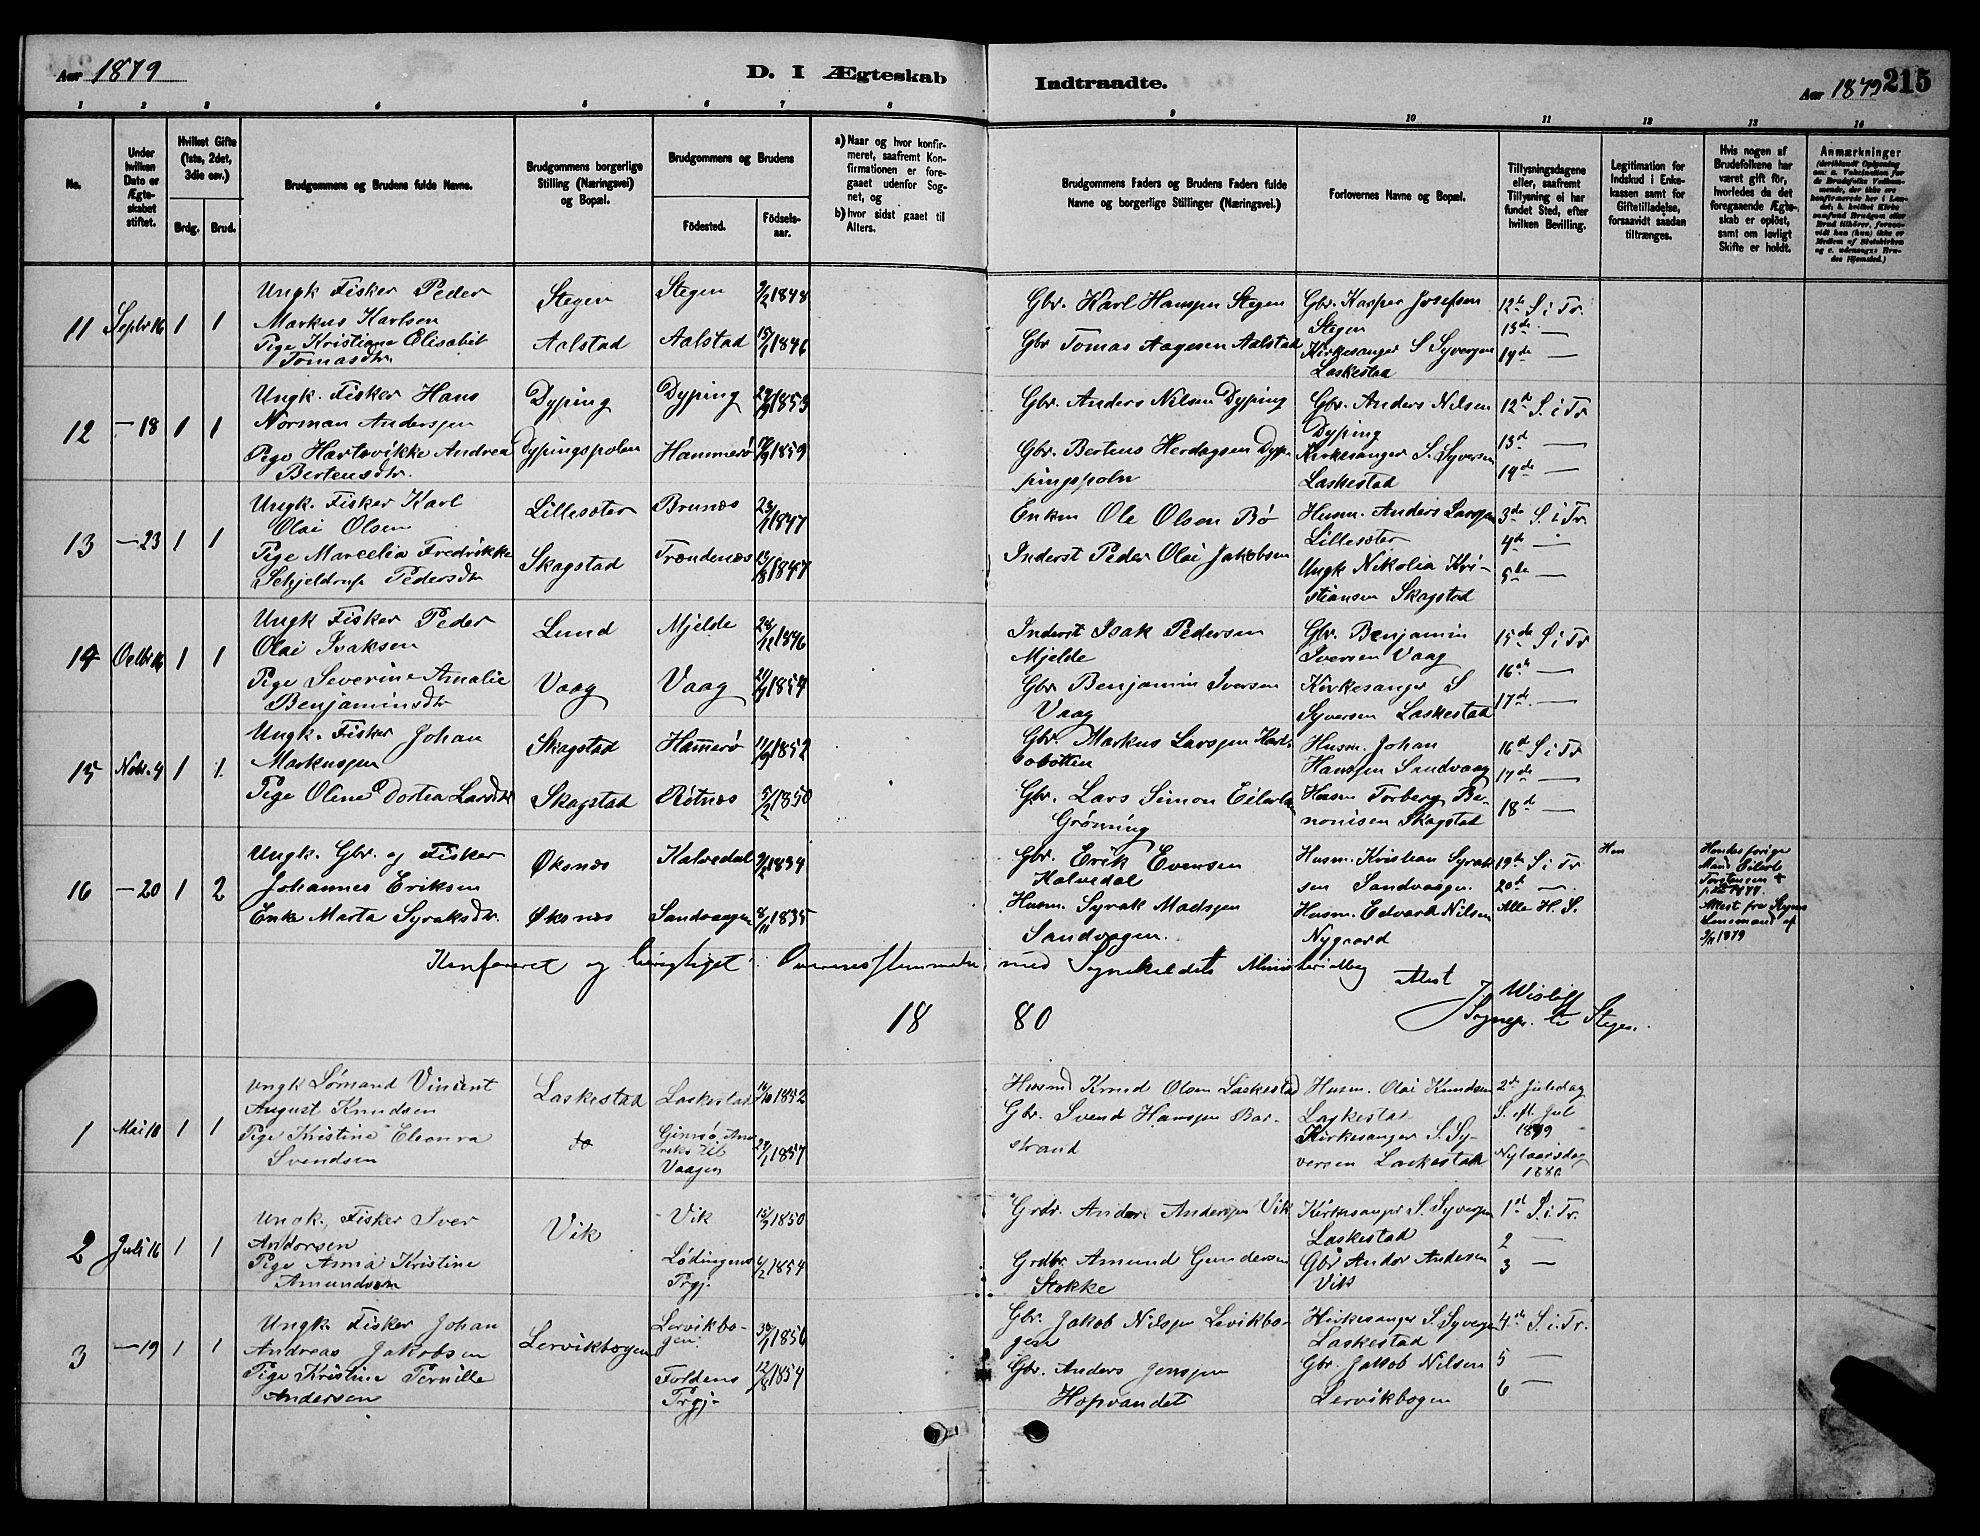 Aar 1879
D. I Ægteskab
Indtraadte.
Aar 1879
215
1 2 3 4 5 6 7 8
9 10 11 12 13 14
No.
Under hvilken Dato er Ægteskabet stiftet.
Hvilket Gifte (1ste, 2det, 3die osv.)
Brdg. Brud.
Brudgommens og Brudens fulde Navne.
Brudgommens borgerlige Stilling (Næringsvei) og Bopæl.
Brudgommens og Brudens
Födested.
Födselsaar.
a) Naar og hvor konfirmeret, saafremt Konfirmationen er foregaaet udenfor Sognet, og
b) hvor sidst gaaet til Alters.
Brudgommens Faders og Brudens Faders fulde Navne og borgerlige Stillinger (Næringsvei.)
Forlovernes Navne og Bopæl.
Tillysningsdagene eller, saafremt Tillysning ei har fundet Sted, efter hvilken Bevilling.
Legitimation for Indskud i Enkekassen samt for Giftetilladelse, forsaavidt saadan tiltrænges.
Hvis nogen af Brudefolkene har været gift för, hvorledes da det foregaaende Ægteskab er oplöst, samt om lovligt Skifte er holdt.
Anmærkninger
11 Septbr 16 1 1
Ungk Fisker Peder
Markus Karlsen
Pige Kristiane Elisabet
Tomasdtr.
Stegen
Aalstad
Stegen 9/2 1848
Aalstad 15/1 1846
Gbr. Karl Hanssen Stegen
Gbr Tomas Aagesen Aalstad
Gbr. Kasper Josefsen
Stegen
Kirkesanger S Syversen
Laskestad
12te S. i Tr.
13de —
14de —
12 —18 1 1
Ungk. Fisker Hans
Norman Anderssen
Pige Hartvikke Andrea
Bertensdtr.
Dyping
Dypingspoln
Dyping 1853
Hammerö 1859
Gbr. Anders Nilsen Dyping
Gbr. Bertens Herdagsen Dyp
pingspoln
Gbr. Anders Nilsen
Dyping
Kirkesanger S. Syversen
Laskestad
12te S. i Tr
13de —
14de —
13 —23 1 1
Ungk. Fisker Karl
Olai Olsen
Pige Marcelia Fredrikke
Schjeldrup Pedersdtr
Lillesæter
Skagstad
Brunæs 23/1 1847
Trondenæs 1847
Enken Ole Olsen Bö
Inderst Peder Olai Jakobsen
Husm. Anders Larssen
Lillesæter
Ungk Nikolia Kri-
stiansen Skagstad
3de S. i Tr.
4de —
5te —
14 Octbr 16 1 1
Ungk Fisker Peder
Olai Isaksen
Pige Severine Amalie
Benjaminsdtr
Lund
Vaag
Mjelde 28/12 1846
Vaag 1854
Inderst Isak Pedersen
Mjelde
Gbr Benjamin Iversen
Vaag
Gbr. Benjamin
Iversen Vaag
Kirkesanger S
Syversen Laskestad
15de S i Tr
16de —
17de —
15 Nobr. 4 1 1
Ungk. Fisker Johan
Markussen
Pige Olene Dortea Larsdtr
Skagstad
Skagstad
Hamerö 1852
Rötnæs 5/2 1850
Gbr. Markus Larssen
Gbr. Lars Simon
Gröning
Husm. Johan
Hanssen Sandvaag
Husm Torberg Be-
nonisen Skagstad
16de S i Tr
17de —
18de —
16 —20 1 2
Ungk. Gbr. og Fisker
Johannes Eriksen
Enke Marta Syraksdtr.
Öksnæs
Öksnæs
Kalvedal 9/2 1834
Sandvaagen 8/11 1835
Gbr. Erik Evensen
Kalvedal
Husm. Syrak Madssen
Sandvagen.
Husm. Kristian Syrak
sen Sandvaagen
Husm. Edvart Nilsen
Nygaard
19de S i Tr
20de —
Alle H. S.
Hendes forige
Mand Eilert
Torstensen +
1877.
Attest fra
Lensmand af
1879
Konfereret og berigtiget i Overensstemmelse med Sognekaldets Ministerialbog
Attest
J Wisløff
Sognepr. til Stegen.
18 80
1 Mai 10 1 1
Ungk Sömand Vincent
August Knudsen
Pige Kristine Eleonra
Svendsen
Laskestad
do
Laskestad 14/10 1852
Gimsö, An-
neks til
Vaagen 1857
Husmd Knud Olsen Laskestad
Gbr. Svend Hanssen Bar-
strand
Husm. Olai Knudsen
Laskestad
Kirkesanger S. Sy-
versen Laskestad
2den Juledag
S. eft. Jul
1879
Nytaarsdag
1880
2 Juli 16 1 1
Ungk. Fisker Iver
Andorsen
Pige Anna Kristine
Amundsen
Vik
Vik 1850
Lödingens
Prgj. 1854
Grdr. Andor Anderssen Vik
Grdbr. Amund Gundersen
Stokke
Kirkesanger S. Syversen
Laskestad
Gbr Andor Andersen
Vik
1ste S. i Tr.
2 —
3 —
3 —19 1 1
Ungk. Fisker Johan
Andreas Jakobsen
Pige Kristine Pernille
Andersen
Lervikbogen
Lervikbo-
gen. 1856
Foldens
Prgj. 12/8 1854
Gbr. Jakob Nilssen Levikbo-
gen
Gbr. Anders Jenssen
Hopvandet
Kirkesanger S. Syversen
Laskestad
Gbr. Jakob Nilsen
Lervikbogen
4de S. i Tr.
5 —
6 —